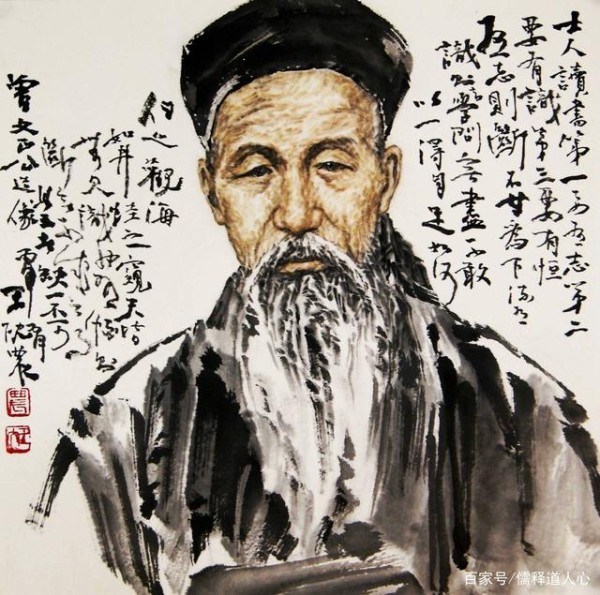 士人讀書第一要有志第二
要有識第三要有恒
有志則斷不甘為下流有
識則知學問無盡不敢
以一得自足如河
伯之觀海
如井蛙之窺天皆
無見識也有恒則
斷無不成之事
此三者缺一不可
曾文正公造像
百家号/儒释道人心